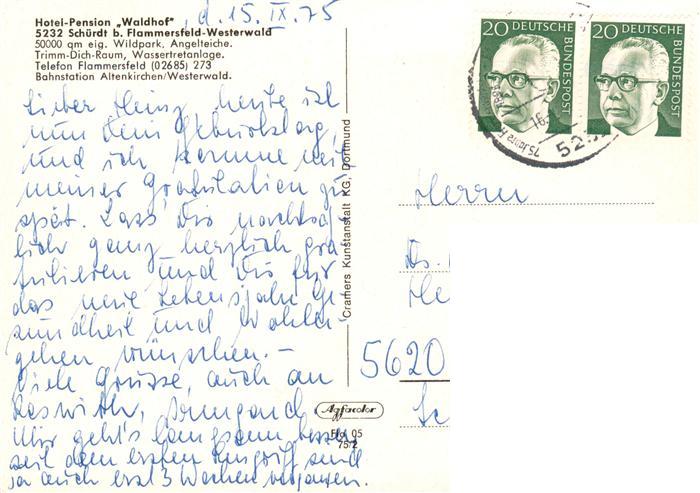 Hotel-Pension „Waldhof"
, d. 15. IX. 75
5232 Schürdt b. Flammersfeld-Westerwald
50000 qm eig. Wildpark, Angelteiche.
Trimm-Dich-Raum, Wassertretanlage.
Telefon Flammersfeld (02685) 273
Bahnstation Altenkirchen/Westerwald.
Lieber Heinz, heute ist
nun Dein Geburtstag,
und ich komme mit
meiner Gratulation zu
spät. Lass Dir nachträg-
lich ganz herzlich gra-
tulieren und Dir für
das neue Lebensjahr Ge-
sundheit und Wohler-
gehen wünschen. –
Viele Grüsse, auch an
Roswith, Irmgard.
Mir geht's langsam besser,
seit dem ersten Eingriff sind
ja auch erst 3 Wochen vergangen.
Cramers Kunstanstalt KG, Dortmund
Agfacolor
05
75/2
20 DEUTSCHE BUNDESPOST
20 DEUTSCHE BUNDESPOST
16.
75 Jahre
52
Herrn
Dr.
He
5620